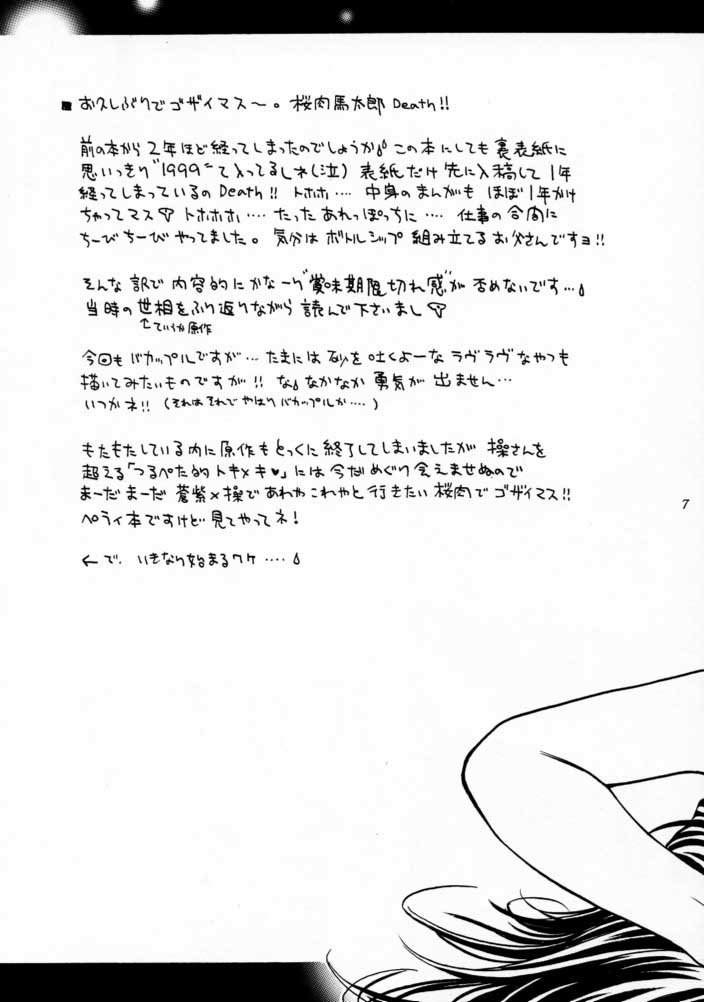 ■ お久しぶりでゴザイマス〜。桜肉馬太郎 Death!!
前の本から2年ほど経ってしまったのでしょうか この本にしても裏表紙に
思いっきり"1999"て入ってるしネ(泣) 表紙だけ先に入稿して1年
経ってしまっているの Death!! トホホ‥‥ 中身のまんがも ほぼ1年かけ
ちゃってマス トホホホ‥‥ たったあれっぽっちに‥‥ 仕事の合間に
ちーびちーびやってました。気分はボトルシップ組み立てるお父さんですヨ!!
そんな訳で内容的にかな〜り"賞味期限切れ感"が否めないです…
当時の世相をふり返りながら読んで下さいまし
↑ていうか原作
今回もバカップルですが… たまには砂を吐くよーなラヴラヴなやつも
描いてみたいものですが!! な なかなか勇気が出ません…
いつかネ!! (それはそれでやはりバカップルか‥‥)
もたもたしている内に原作もとっくに終了してしまいましたが 操さんを
超える「つるぺた的トキメキ♥」には今だめぐり会えませぬので
まーだまーだ 蒼紫×操であれやこれやと行きたい桜肉でゴザイマス!!
ペライ本ですけど見てやってネ!
← で、いきなり始まるワケ‥‥
7